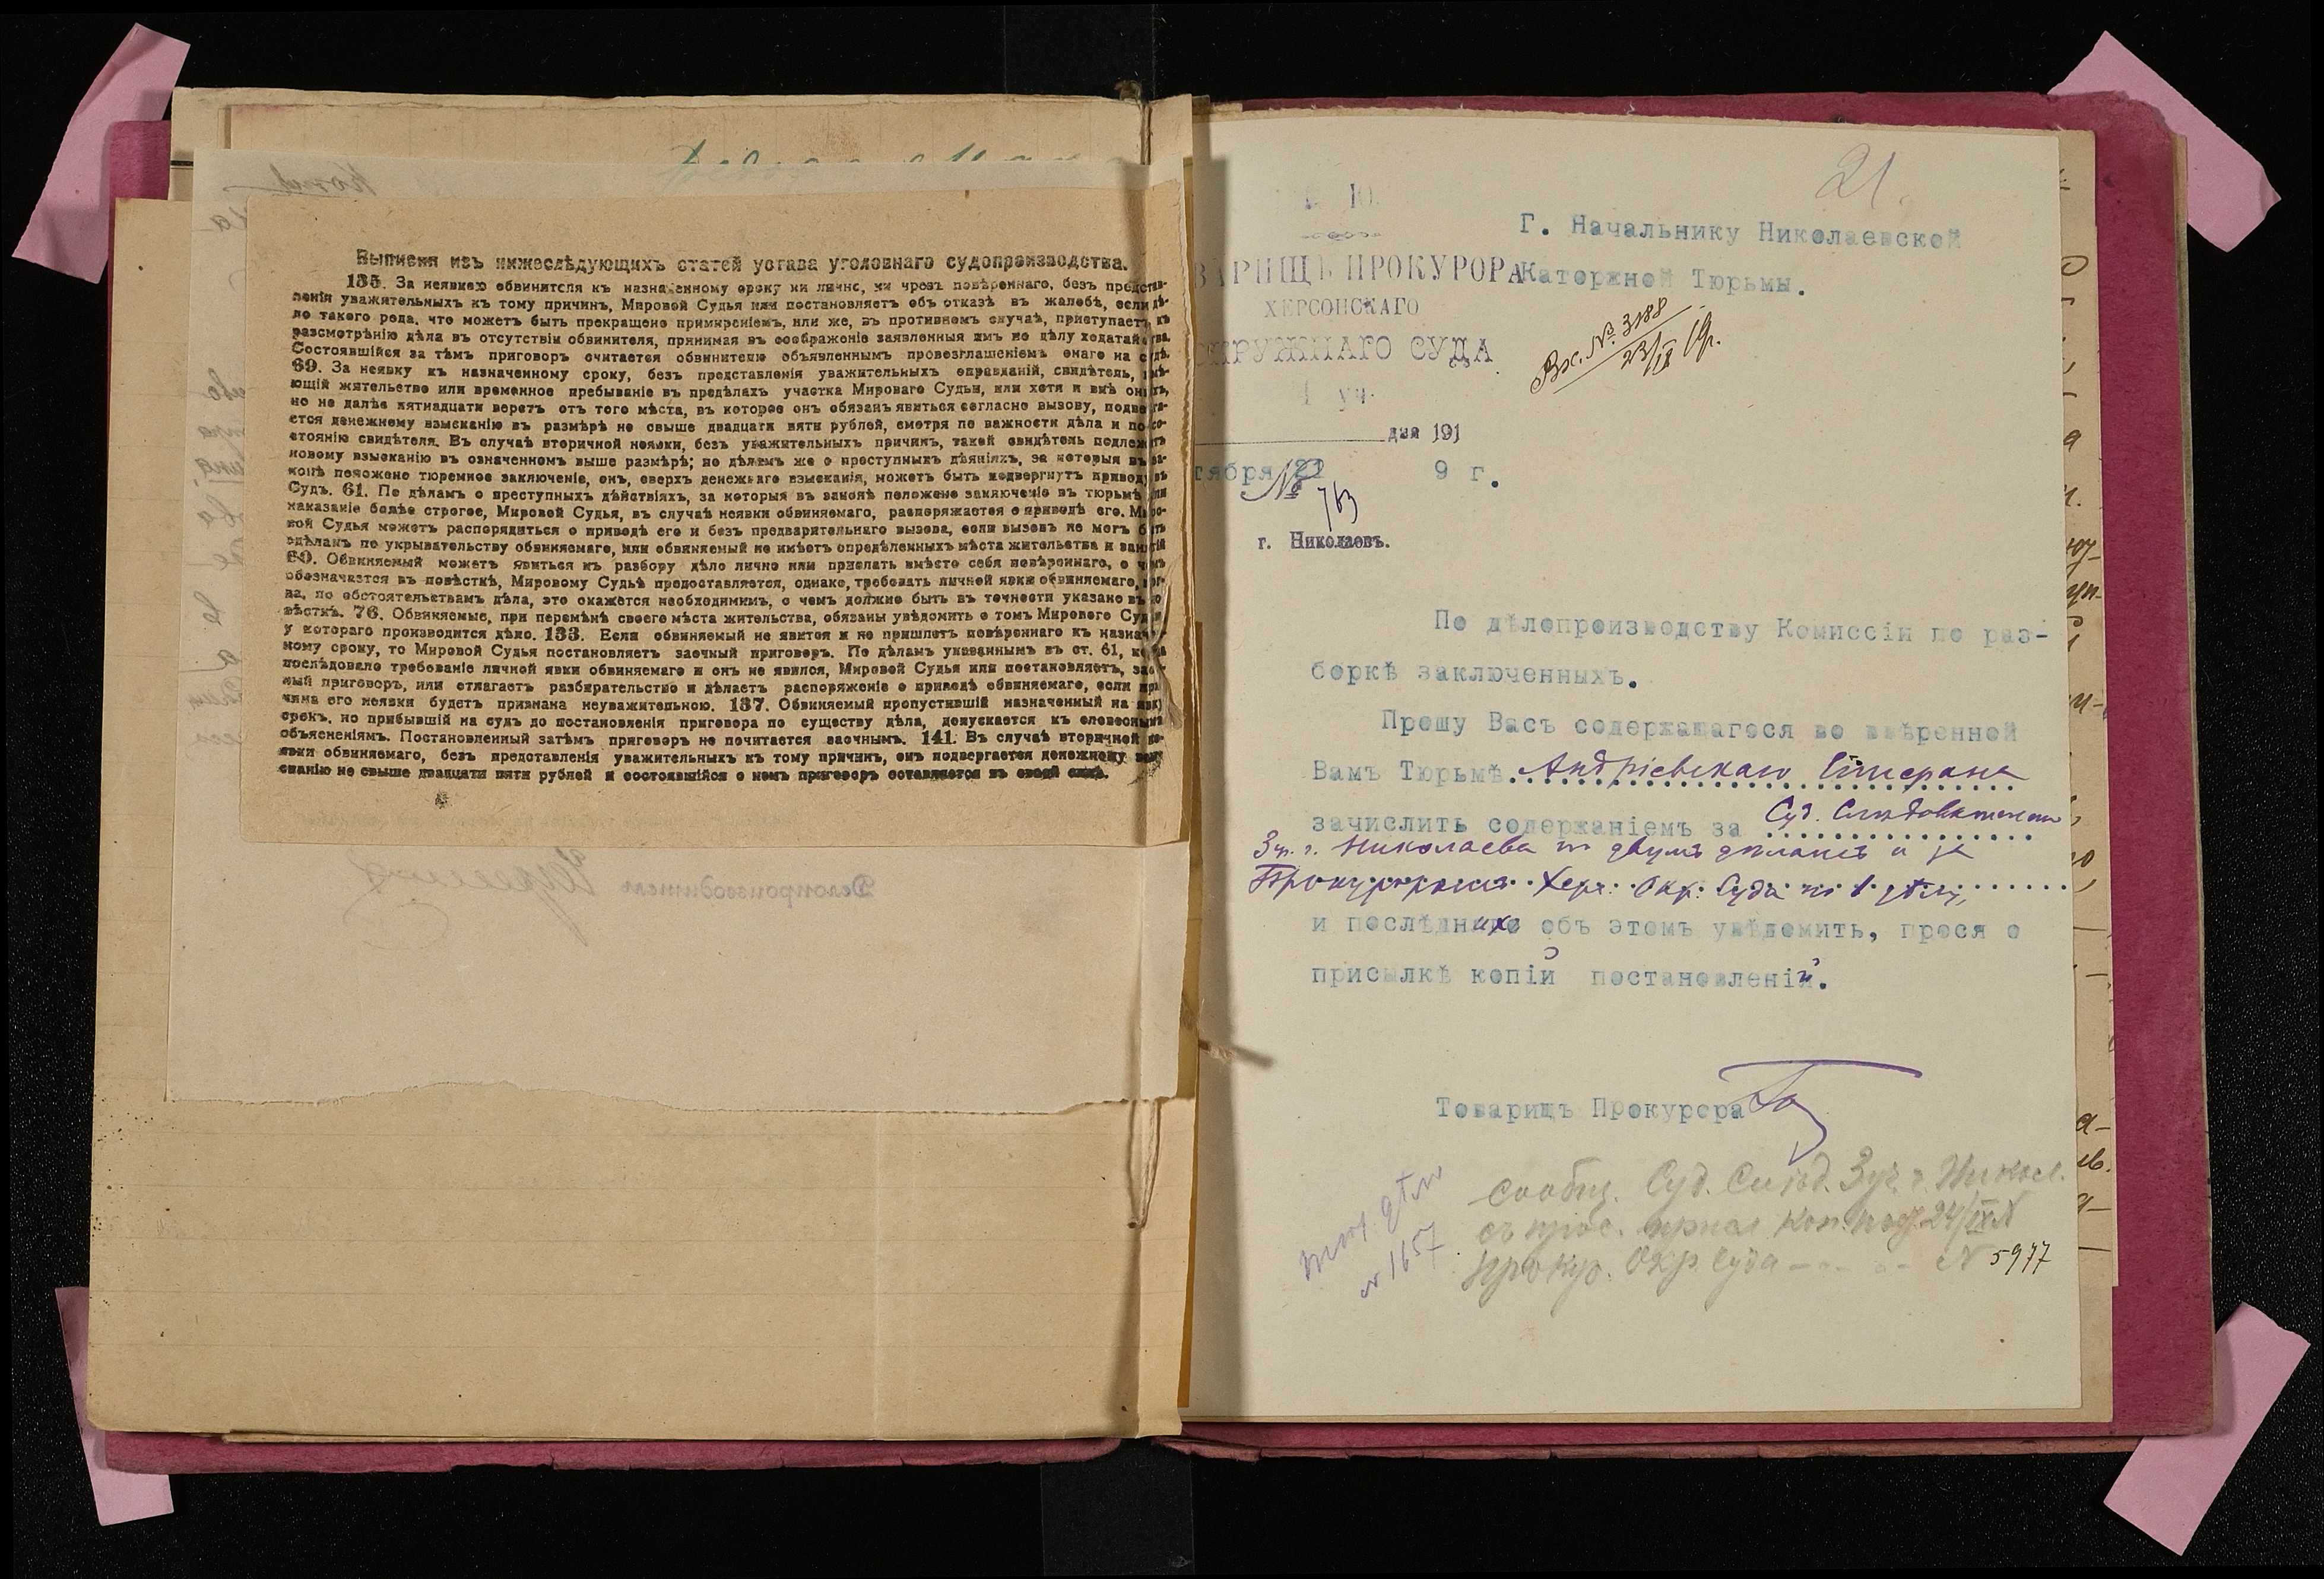 Выписки изъ нижеслѣдующихъ статей устава уголовнаго судопроизводства.
135. За неявкою обвинителя къ назначенному сроку ни лично, ни чрезъ повѣреннаго, безъ представ-
ленія уважительныхъ къ тому причинъ, Мировой Судья или постановляетъ объ отказѣ въ жалобѣ, если дѣ-
ло такого рода, что можетъ быть прекращено примиреніемъ, или же, въ противномъ случаѣ, приступаетъ къ
разсмотрѣнію дѣла въ отсутствіи обвинителя, принимая въ соображеніе заявленныя имъ по дѣлу ходатайства.
Состоявшійся за тѣмъ приговоръ считается обвинителю объявленнымъ провозглашеніемъ онаго на судѣ.
69. За неявку къ назначенному сроку, безъ представленія уважительныхъ оправданій, свидѣтель, имѣ-
ющій жительство или временное пребываніе въ предѣлахъ участка Мироваго Судьи, или хотя и внѣ онаго,
но не далѣе пятнадцати верстъ отъ того мѣста, въ которое онъ обязанъ явиться согласно вызову, подверга-
ется денежному взысканію въ размѣрѣ не свыше двадцати пяти рублей, смотря по важности дѣла и по со-
стоянію свидѣтеля. Въ случаѣ вторичной неявки, безъ уважительныхъ причинъ, такой свидѣтель подлежитъ
новому взысканію въ означенномъ выше размѣрѣ; по дѣламъ же о преступныхъ дѣяніяхъ, за которыя въ за-
конѣ положено тюремное заключеніе, онъ, сверхъ денежнаго взысканія, можетъ быть подвергнутъ приводу въ
Судъ. 61. По дѣламъ о преступныхъ дѣйствіяхъ, за которыя въ законѣ положено заключеніе въ тюрьмѣ или
наказаніе болѣе строгое, Мировой Судья, въ случаѣ неявки обвиняемаго, распоряжается о приводѣ его. Миро-
вой Судья можетъ распорядиться о приводѣ его и безъ предварительнаго вызова, если вызовъ не могъ быть
сдѣланъ по укрывательству обвиняемаго, или обвиняемый не имѣетъ опредѣленныхъ мѣста жительства и занятій
60. Обвиняемый можетъ явиться къ разбору дѣла лично или прислать вмѣсто себя повѣреннаго, о чемъ
обозначается въ повѣсткѣ, Мировому Судьѣ предоставляется, однако, требовать личной явки обвиняемаго, ког-
да, по обстоятельствамъ дѣла, это окажется необходимымъ, о чемъ должно быть въ точности указано въ по
вѣсткѣ. 76. Обвиняемые, при перемѣнѣ своего мѣста жительства, обязаны увѣдомить о томъ Мирового Судью
у котораго производится дѣло. 133. Если обвиняемый не явится и не пришлетъ повѣреннаго къ назначен-
ному сроку, то Мировой Судья постановляетъ заочный приговоръ. По дѣламъ указаннымъ въ ст. 61, когда
послѣдовало требованіе личной явки обвиняемаго и онъ не явился, Мировой Судья или постановляетъ, заоч-
ный приговоръ, или отлагаетъ разбирательство и дѣлаетъ распоряженіе о приводѣ обвиняемаго, если при
чина его неявки будетъ признана неуважительною. 137. Обвиняемый пропустившій назначенный на явку
срокъ, но прибывшій на судъ до постановленія приговора по существу дѣла, допускается къ словеснымъ
объясненіямъ. Постановленный затѣмъ приговоръ не почитается заочнымъ. 141. Въ случаѣ вторичной не-
явки обвиняемаго, безъ представленія уважительныхъ къ тому причинъ, онъ подвергается денежному взы-
сканію не свыше двадцати пяти рублей и состоявшійся о немъ приговоръ оставляется въ своей силѣ.
Делопроизводитель
21.
Ю.
ВАРИЩЪ ПРОКУРОРА
ХЕРСОНСКАГО
ОКРУЖНАГО СУДА
1 уч.
дня 191
тября 21 9 г.
№ 763
г. Николаевъ.
Г. Начальнику Николаевской
Каторжной Тюрьмы.
Вх. № 3188
23/IX 19г.
По дѣлопроизводству Комиссіи по раз-
боркѣ заключенныхъ.
Прошу Васъ содержащагося во ввѣренной
Вамъ Тюрьмѣ Андріевскаго Стефана
зачислить содержаніемъ за Суд. Слѣдователемъ
3 уч. г. Николаева по двумъ дѣламъ и за
Прокуроромъ Херс. Окр. Суда по 1 дѣлу,
и послѣднихъ объ этомъ увѣдомить, прося о
присылкѣ копій постановленій.
Товарищъ Прокурора
Сообщ. Суд. Слѣд. 3 уч. г. Никол.
съ прос. присл. коп. пост. 24/IX №
Прокур. Окр. Суда — — № 5977
№ 1657